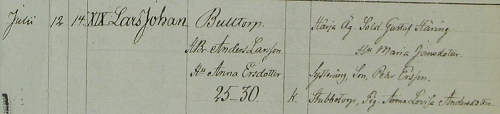 Julii 12 14. XIX Lars Johan Bulltorp. Härja Äg. Sold. Gustaf Häring
HBr Anders Larson Hu Maria Jansdotter
Hu Anna Ersdotter Son, Peter Ersson.
25-30. K. Stubbetorp, Pig. Anna Lovisa Andersdotter